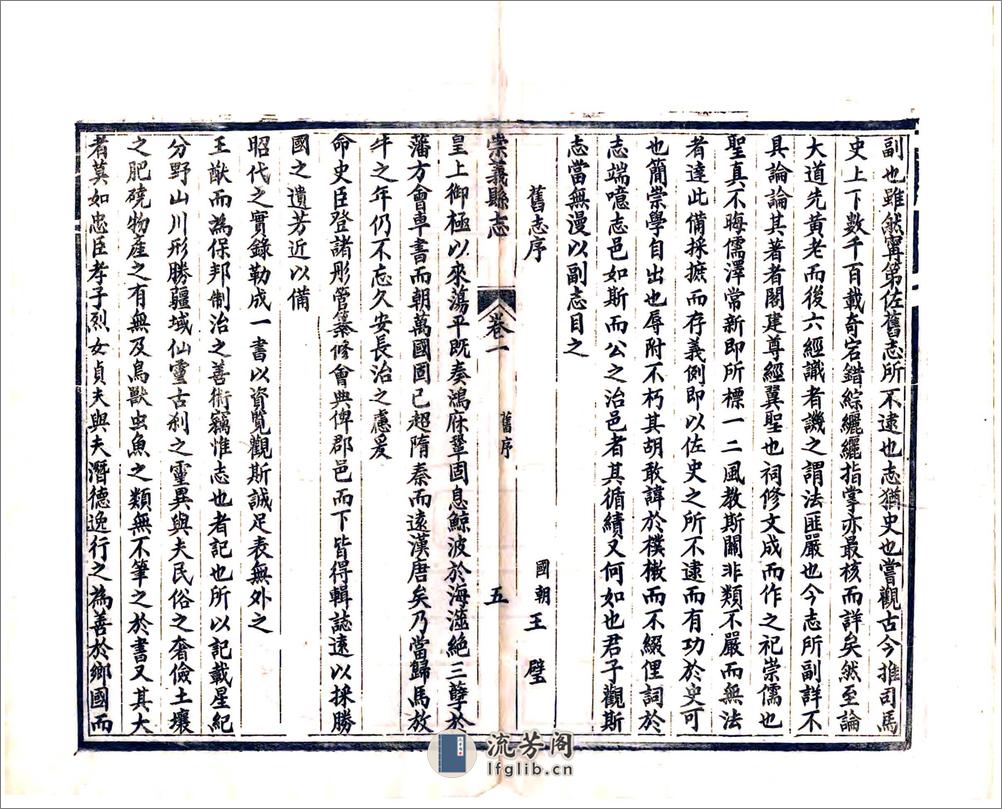 副也雖然寧第佐舊志所不逮也志猶史也嘗觀古今推司馬
史上下數千百載奇宕錯綜纚纚指掌亦最核而詳矣然至論
大道先黃老而後六經識者譏之謂法匪嚴也今志所副詳不
具論論其著者閣建尊經翼聖也祠修文成而作之祀崇儒也
聖真不晦儒澤當新即所標一二風教斯關非類不嚴而無法
者達此備採摭而存義例即以佐史之所不逮而有功於史可
也簡崇學自出也辱附不朽其胡敢諱於樸樕而不綴俚詞於
志端噫志邑如斯而公之治邑者其循績又何如也君子觀斯
志當無漫以副志目之
舊志序 國朝王 璧
崇義縣志 卷一 舊序 五
皇上御極以來蕩平既奏鴻庥鞏固息鯨波於海澨絕三孽於
藩方會車書而朝萬國固已超隋秦而遠漢唐矣乃當歸馬放
牛之年仍不忘久安長治之慮爰
命史臣登諸彤管纂修會典俾郡邑而下皆得輯誌遠以採勝
國之遺芳近以備
昭代之實錄勒成一書以資覽觀斯誠足表無外之
王猷而為保邦制治之善術竊惟志也者記也所以記載星紀
分野山川形勝疆域仙靈古剎之靈異與夫民俗之奢儉土壤
之肥磽物產之有無及鳥獸虫魚之類無不筆之於書又其大
者莫如忠臣孝子烈女貞夫與夫潛德逸行之為善於鄉國而
流芳阁
lfglib.cn